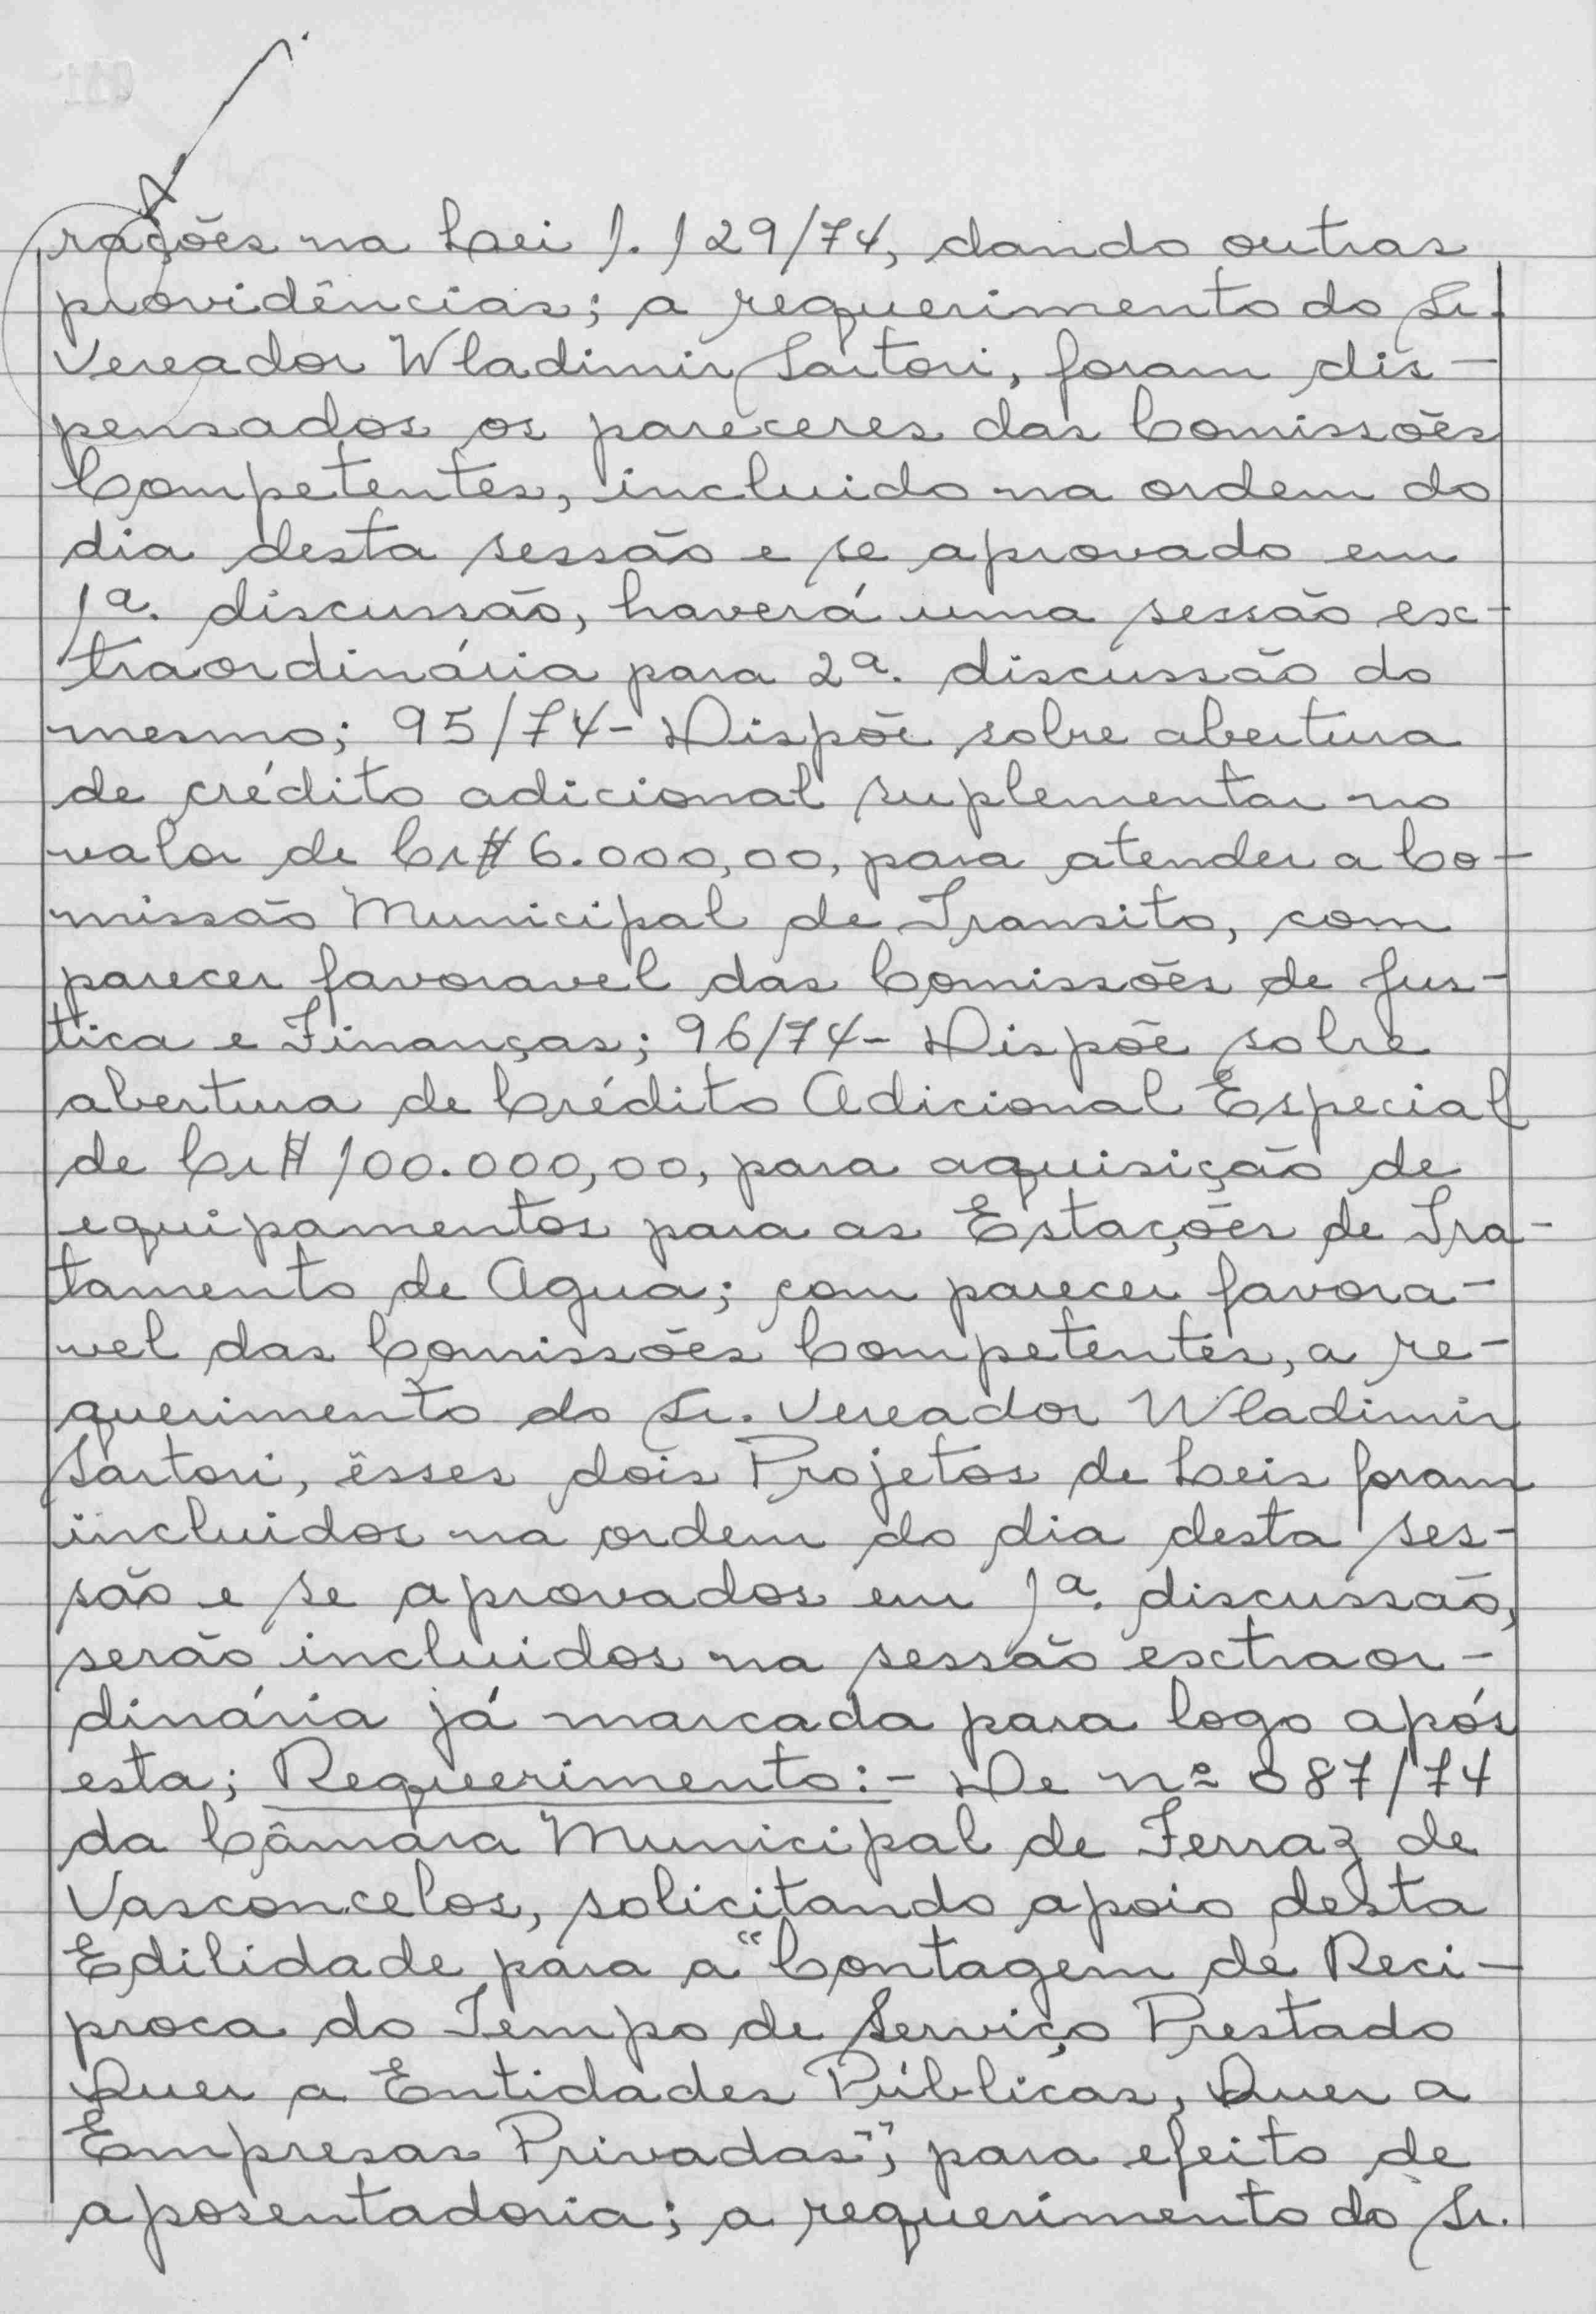 rações na Lei 1.129/74, dando outras
providências; a requerimento do Sr.
Vereador Wladimir Sartori, foram dis-
pensados os pareceres das Comissões
Competentes, incluido na ordem do
dia desta sessão e se aprovado em
1ª. discussão, haverá uma sessão ex-
traordinária para 2ª. discussão do
mesmo; 95/74- Dispõe sobre abertura
de crédito adicional suplementar no
valor de Cr$ 6.000,00, para atender a Co-
missão Municipal de Transito, com
parecer favoravel das Comissões de Jus-
tica e Finanças; 96/74- Dispõe sobre
abertura de Crédito Adicional Especial
de Cr$ 100.000,00, para aquisição de
equipamentos para as Estações de Tra-
tamento de Agua; com parecer favora-
vel das Comissões Competentes, a re-
querimento do Sr. Vereador Wladimir
Sartori, êsses dois Projetos de Leis foram
incluidos na ordem do dia desta ses-
são e se aprovados em 1ª. discussão,
serão incluidos na sessão extraor-
dinária já marcada para logo após
esta; Requerimento:- De nº 087/74
da Câmara Municipal de Ferraz de
Vasconcelos, solicitando apoio desta
Edilidade para a "Contagem de Reci-
proca do Tempo de Serviço Prestado
Quer a Entidades Públicas, Quer a
Empresas Privadas", para efeito de
aposentadoria; a requerimento do Sr.